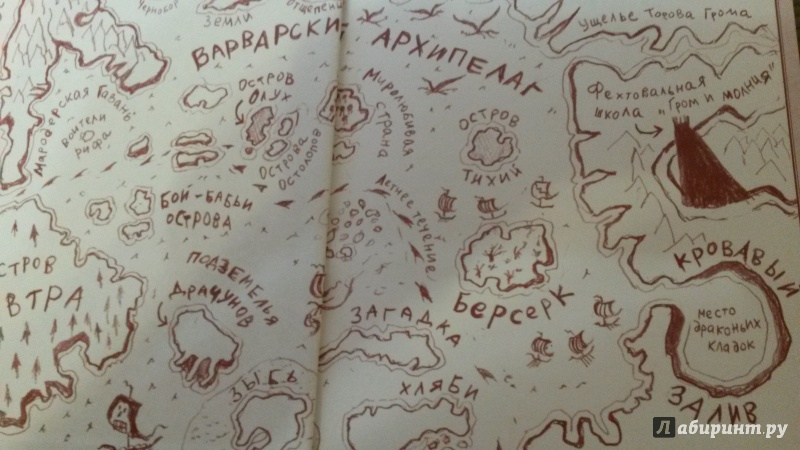 Чернобор
Земли
Отщепен
ВАРВАРСКИ
АРХИПЕЛАГ
Ущелье Торова Грома
Фехтовальная
школа „Гром и молния"
Мародёрская Гавань
воители
рифа
ОСТРОВ
ОЛУХ
ОСТРОВА
ОСТОЛОПОВ
Миролюбивая
страна
ОСТРОВ
ТИХИЙ
БОЙ-БАБЬИ
ОСТРОВА
Летнее течение
СТРОВ
ВТРА
ПОДЗЕМЕЛЬЯ
ДРАЧУНОВ
БЕРСЕРК
КРОВАВЫЙ
ЗАЛИВ
место
драконьих
кладок
ЗАГАДКА
ЗЫБЬ
ХЛЯБИ
Лабиринт.ру